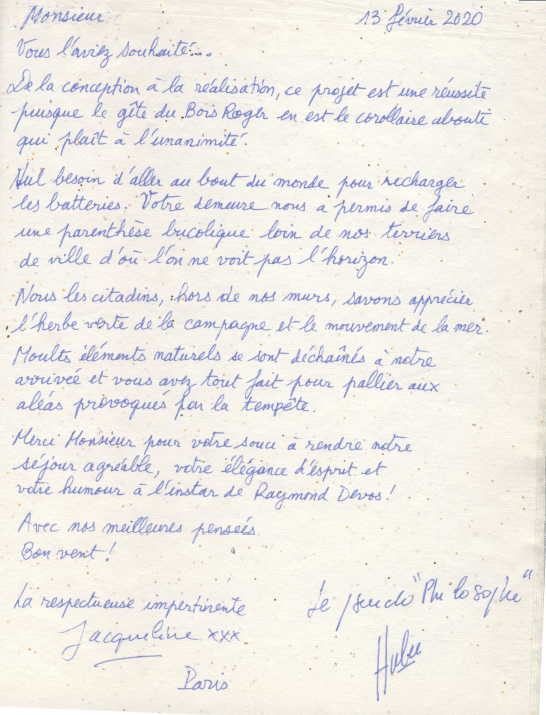 Monsieur 13 février 2020
Vous l'aviez souhaité...
De la conception à la réalisation, ce projet est une réussite
puisque le gîte du Bois Roger en est le corollaire abouti
qui plaît à l'unanimité.
Nul besoin d'aller au bout du monde pour recharger
les batteries. Votre demeure nous a permis de faire
une parenthèse bucolique loin de nos terriers
de ville d'où l'on ne voit pas l'horizon.
Nous les citadins, hors de nos murs, savons apprécier
l'herbe verte de la campagne et le mouvement de la mer.
Moults éléments naturels se sont déchaînés à notre
arrivée et vous avez tout fait pour pallier aux
aléas provoqués par la tempête.
Merci Monsieur pour votre souci à rendre notre
séjour agréable, votre élégance d'esprit et
votre humour à l'instar de Raymond Devos !
Avec nos meilleures pensées.
Bon vent !
La respectueuse impertinente
Jacqueline xxx
Paris
Le pseudo "Philosophe"